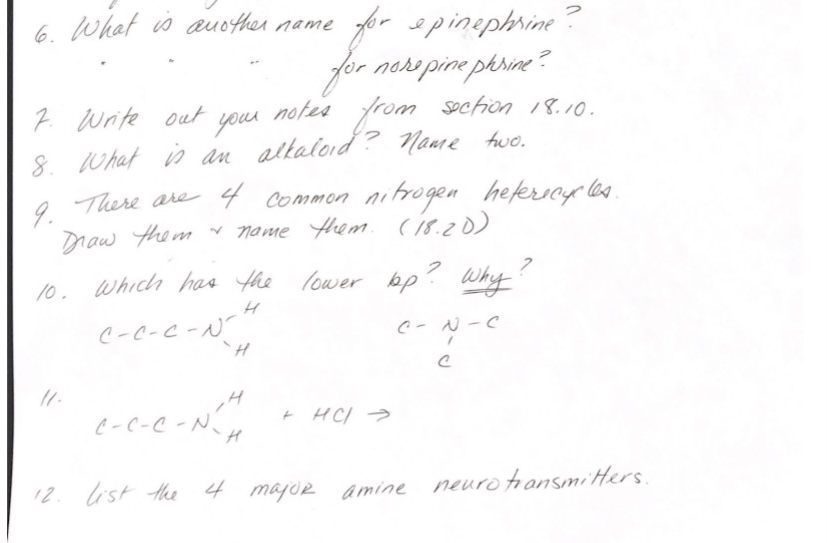 6. What is another name for epinephrine?
" " " for norepinephrine?
7. Write out your notes from section 18.10.
8. What is an alkaloid? Name two.
9. There are 4 common nitrogen heterocycles.
Draw them & name them. (18.2D)
10. Which has the lower bp? Why?
H
C-C-C-N C-N-C
H C
11.
H
C-C-C-N + HCl →
H
12. List the 4 major amine neurotransmitters.